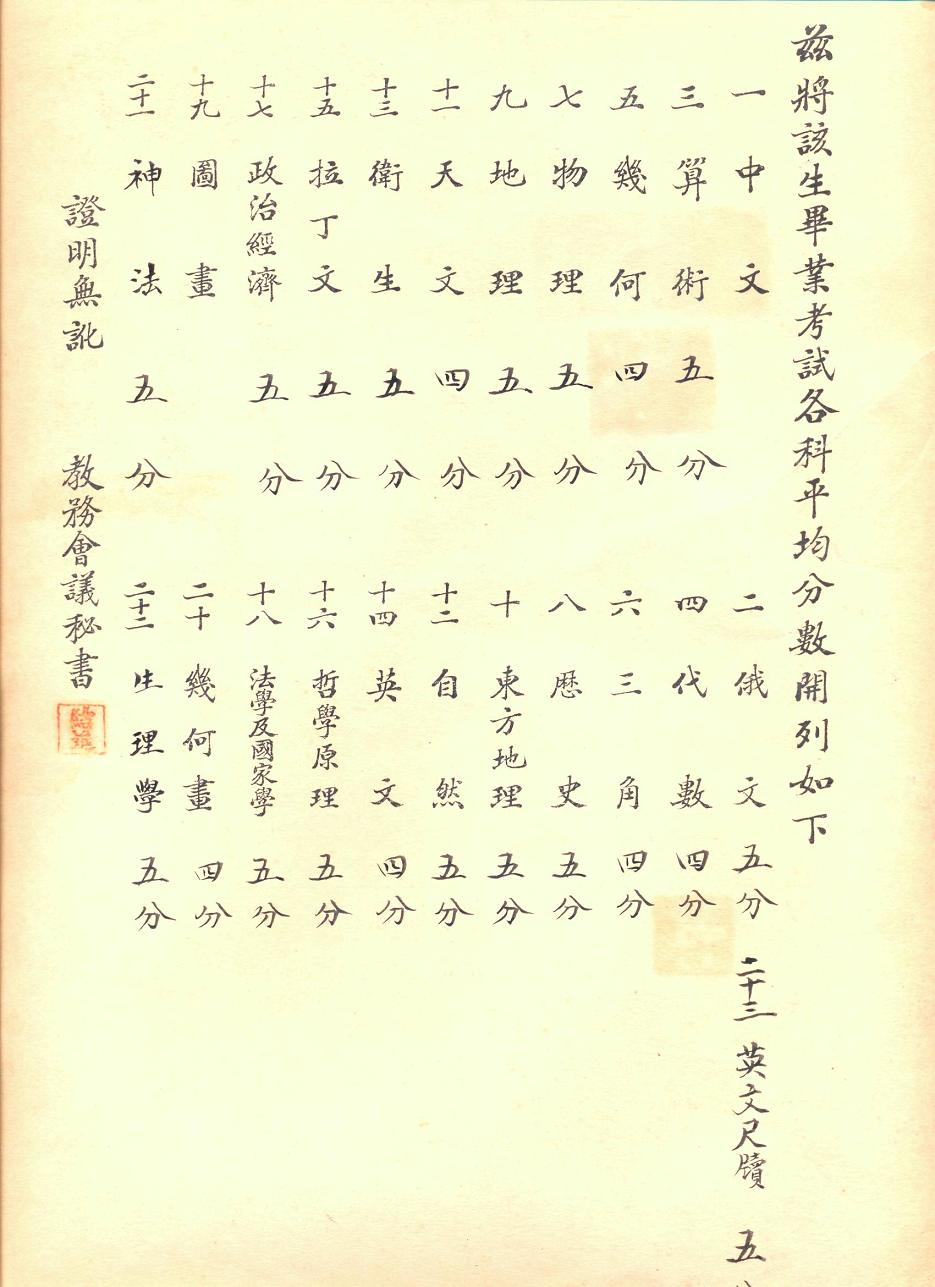 茲將該生畢業考試各科平均分數開列如下
一 中文 二 俄文 五分 二十三 英文尺牘 五
三 算術 五分 四 代數 四分
五 幾何 四分 六 三角 四分
七 物理 五分 八 厯史 五分
九 地理 五分 十 東方地理 五分
十一 天文 四分 十二 自然 五分
十三 衛生 五分 十四 英文 四分
十五 拉丁文 五分 十六 哲學原理 五分
十七 政治經濟 五分 十八 法學及國家學 五分
十九 圖畫 二十 幾何畫 四分
二十一 神法 五分 二十二 生理學 五分
證明無訛 教務會議秘書